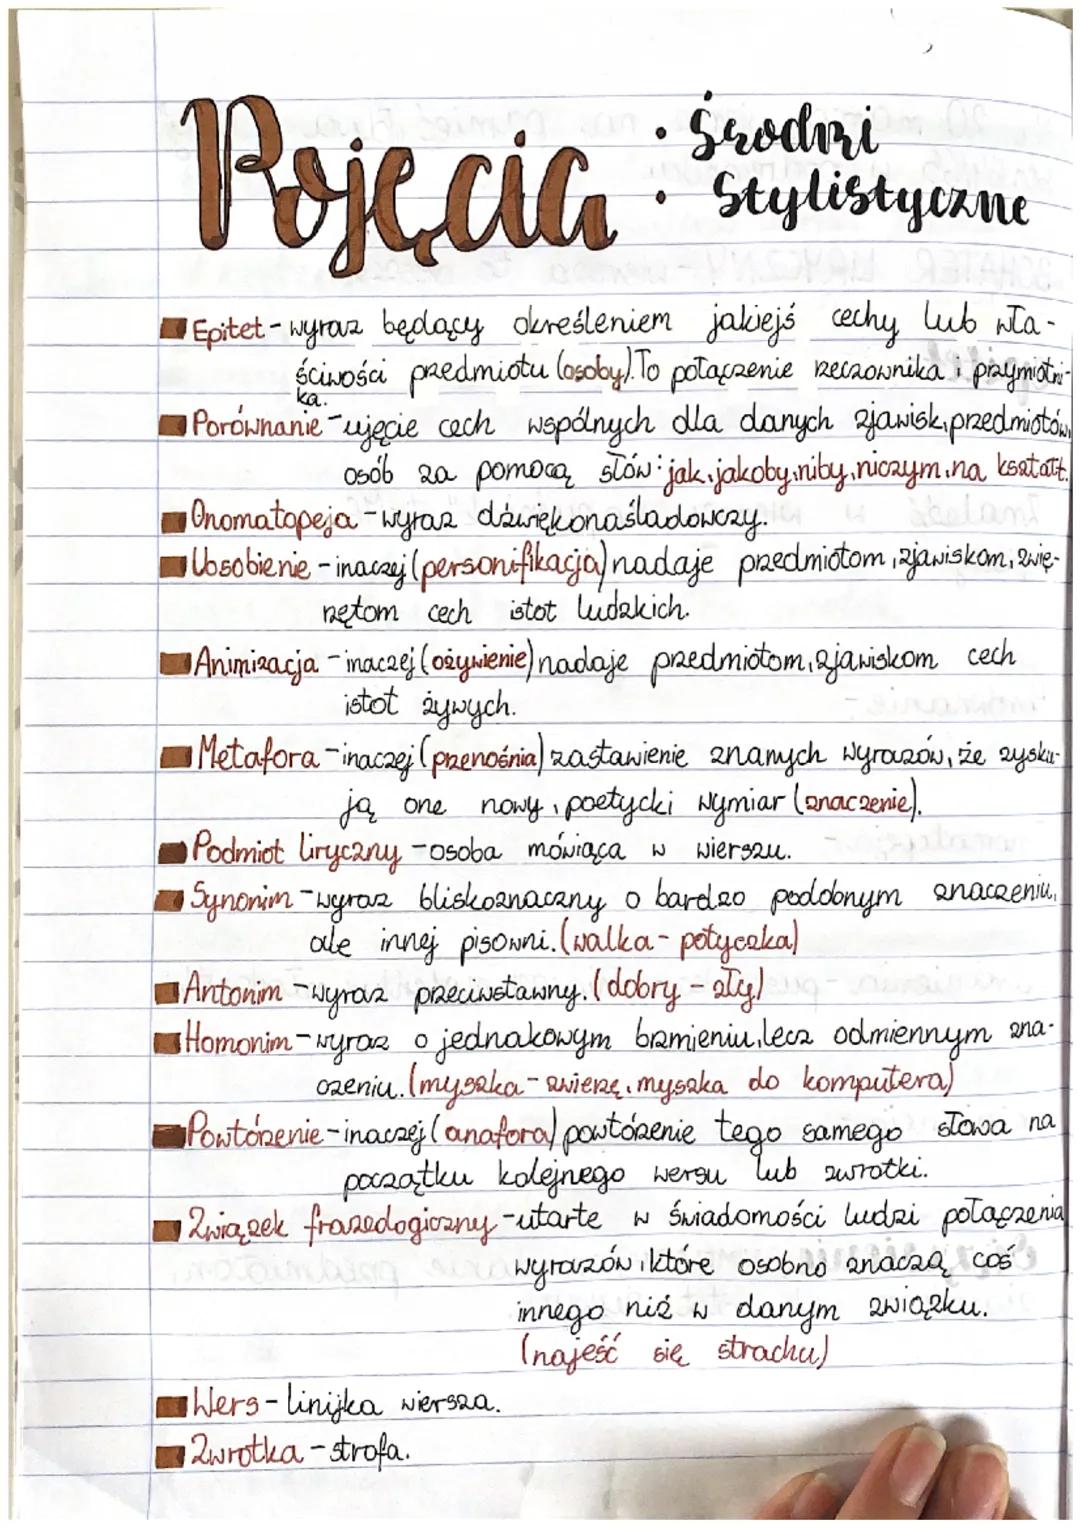 Pojęcia
• Środki
• Stylistyczne
Epitet - wyraz będący określeniem jakiejś cechy lub wła-
ściwości przedmiotu (osoby). To połączenie rzeczownika i przymiotni-
ka.
Porównanie - ujęcie cech wspólnych dla danych zjawisk, przedmiotów,
osób za pomocą słów: jak, jakoby, niby, niczym, na kształt.
Onomatopeja - wyraz dźwiękonaśladowczy.
Uosobienie - inaczej (personifikacja) nadaje przedmiotom, zjawiskom, zwię-
rzętom cech istot ludzkich.
Animizacja - inaczej (ożywienie) nadaje przedmiotom, zjawiskom cech
istot żywych.
Metafora - inaczej (przenośnia) zastawienie znanych wyrazów, że zysku-
ją one nowy, poetycki wymiar (znaczenie).
Podmiot liryczny - osoba mówiąca w wierszu.
Synonim - wyraz bliskoznaczny o bardzo podobnym znaczeniu,
ale innej pisowni. (walka - potyczka)
Antonim - wyraz przeciwstawny. (dobry - zły)
Homonim - wyraz o jednakowym brzmieniu, lecz odmiennym zna-
czeniu. (myszka - zwierzę, myszka do komputera)
Powtórzenie - inaczej (anafora) powtórzenie tego samego słowa na
początku kolejnego wersu lub zwrotki.
Związek frazeologiczny - utarte w świadomości ludzi połączenia
wyrazów, które osobno znaczą coś
innego niż w danym związku.
(najeść się strachu)
Wers - linijka wiersza.
Zwrotka - strofa.